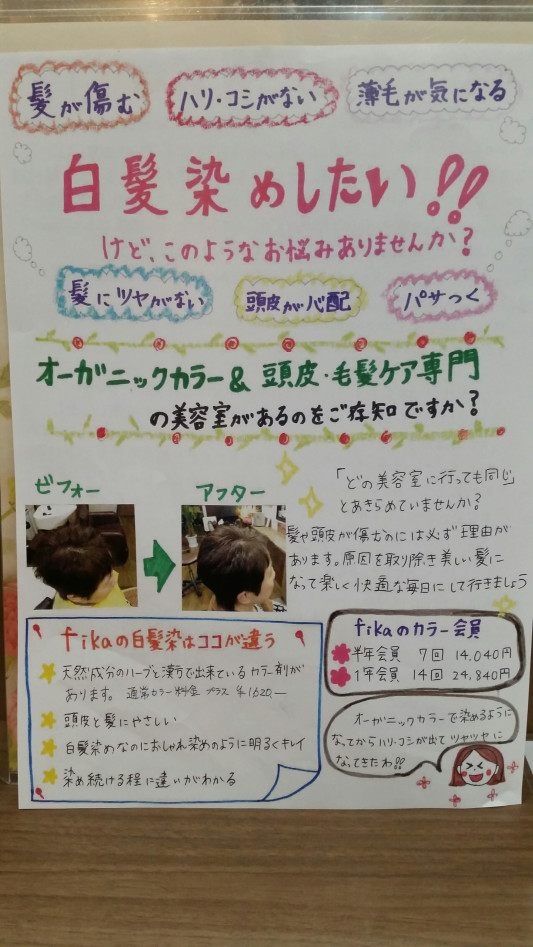 髪が傷む
ハリ・コシがない
薄毛が気になる
白髪染めしたい!!
けど、このようなお悩みありませんか?
髪にツヤがない
頭皮が心配
パサつく
オーガニックカラー& 頭皮・毛髪ケア専門
の美容室があるのをご存知ですか?
ビフォー
アフター
「どの美容室に行っても同じ」
とあきらめていませんか?
髪や頭皮が傷むのには必ず理由が
あります。原因を取り除き美しい髪に
なって楽しく快適な毎日にして行きましょう
fikaの白髪染はココが違う
天然成分のハーブと漢方で出来ているカラー剤が
あります。 通常カラー料金 プラス ¥1620,―
頭皮と髪にやさしい
白髪染めなのにおしゃれ染めのように明るくキレイ
染め続ける程に違いがわかる
fikaのカラー会員
半年会員 7回 14,040円
1年会員 14回 24,840円
オーガニックカラーで染めるように
なってからハリ・コシが出てツヤツヤに
なってきたわ!!